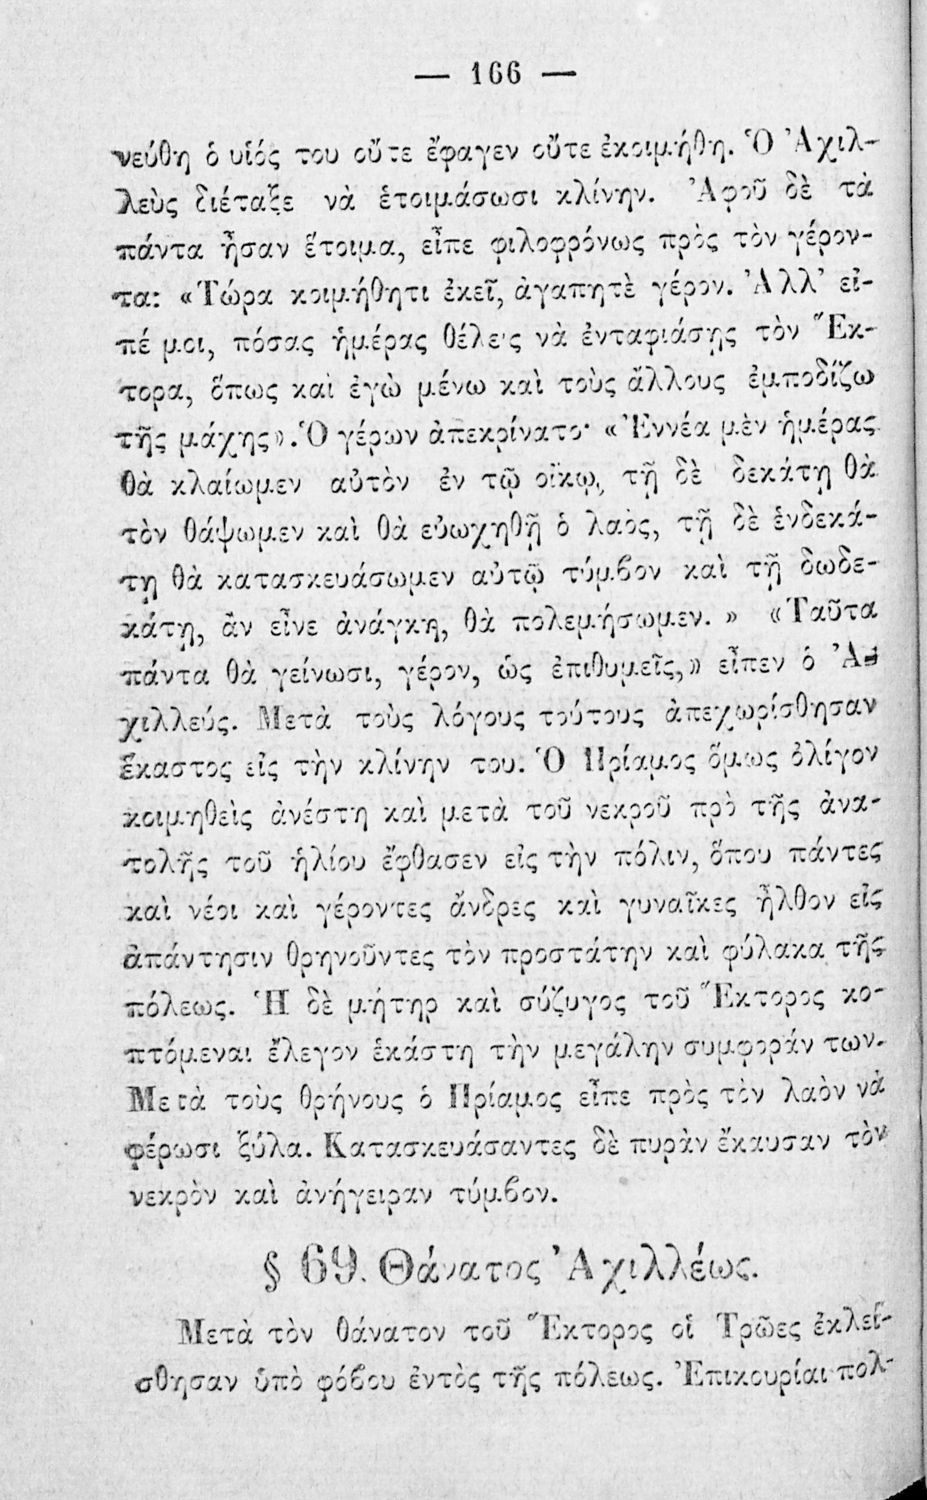 — 166 —
νεύθη ὁ υἱός του οὔτε ἔφαγεν οὔτε ἐκοιμήθη. Ὁ Ἀχιλ-
λεὺς διέταξε νὰ ἑτοιμάσωσι κλίνην. Ἀφοῦ δὲ τὰ
πάντα ἦσαν ἕτοιμα, εἶπε φιλοφρόνως πρὸς τὸν γέρον-
τα: «Τώρα κοιμήθητι ἐκεῖ, ἀγαπητὲ γέρον. Ἀλλ' εἰ-
πέ μοι, πόσας ἡμέρας θέλεις νὰ ἐνταφιάσῃς τὸν Ἕκ-
τορα, ὅπως καὶ ἐγὼ μένω καὶ τοὺς ἄλλους ἐμποδίζω
τῆς μάχης». Ὁ γέρων ἀπεκρίνατο· «Ἐννέα μὲν ἡμέρας
θὰ κλαίωμεν αὐτὸν ἐν τῷ οἴκῳ, τῇ δὲ δεκάτῃ θὰ
τὸν θάψωμεν καὶ θὰ εὐωχηθῇ ὁ λαὸς, τῇ δὲ ἑνδεκά-
τῃ θὰ κατασκευάσωμεν αὐτῷ τύμβον καὶ τῇ δωδε-
κάτῃ, ἂν εἶνε ἀνάγκη, θὰ πολεμήσωμεν. » «Ταῦτα
πάντα θὰ γείνωσι, γέρον, ὡς ἐπιθυμεῖς,» εἶπεν ὁ Ἀ-
χιλλεύς. Μετὰ τοὺς λόγους τούτους ἀπεχωρίσθησαν
ἕκαστος εἰς τὴν κλίνην του. Ὁ Πρίαμος ὅμως ὀλίγον
κοιμηθεὶς ἀνέστη καὶ μετὰ τοῦ νεκροῦ πρὸ τῆς ἀνα-
τολῆς τοῦ ἡλίου ἔφθασεν εἰς τὴν πόλιν, ὅπου πάντες
καὶ νέοι καὶ γέροντες ἄνδρες καὶ γυναῖκες ἦλθον εἰς
ἀπάντησιν θρηνοῦντες τὸν προστάτην καὶ φύλακα τῆς
πόλεως. Ἡ δὲ μήτηρ καὶ σύζυγος τοῦ Ἕκτορος κο-
πτόμεναι ἔλεγον ἑκάστη τὴν μεγάλην συμφοράν των.
Μετὰ τοὺς θρήνους ὁ Πρίαμος εἶπε πρὸς τὸν λαὸν νὰ
φέρωσι ξύλα. Κατασκευάσαντες δὲ πυρὰν ἔκαυσαν τὸν
νεκρὸν καὶ ἀνήγειραν τύμβον.
§ 69. Θάνατος Ἀχιλλέως.
Μετὰ τὸν θάνατον τοῦ Ἕκτορος οἱ Τρῶες ἐκλεί-
σθησαν ὑπὸ φόβου ἐντὸς τῆς πόλεως. Ἐπικουρίαι πολ-